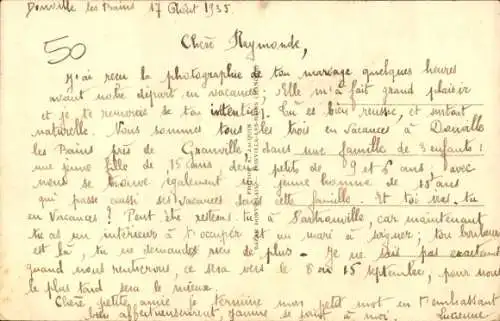 Donville les Bains 17 Août 1935
50
Chère Raymonde,
j'ai reçu la photographie de ton mariage quelques heures
avant notre départ en vacances. Elle m'a fait grand plaisir
et je te remercie de ton intention. Tu es bien réussie, et surtout
naturelle. Nous sommes tous les trois en vacances à Donville
les Bains près de Granville dans une famille de 3 enfants :
une jeune fille de 15 ans deux petits de 9 et 6 ans, avec
nous se trouve également un jeune homme de 18 ans
qui passe aussi ses vacances dans cette famille. Et toi vas-tu
en vacances ? Peut être restes-tu à Sartrouville, car maintenant
tu as un intérieur à t'occuper et un mari à soigner, ton bonheur
est là, tu ne demandes rien de plus. Je ne sais pas exactement
quand nous rentrerons, ce sera vers le 8 ou 15 septembre, pour nous
le plus tard sera le mieux.
Chère petite amie je termine mon petit mot en t'embrassant
bien affectueusement, Jeanne se joint à moi. Lucienne